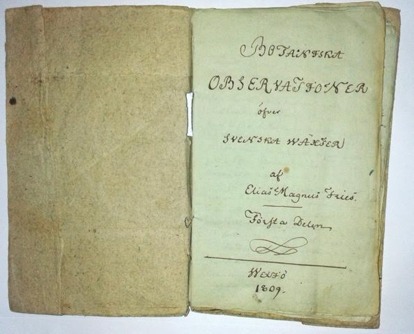 BOTANISKA
OBSERVATIONER
öfver
SVENSKA WÄXTER
af
Elias Magnus Fries.
Första Delen
Wexiö
1809.